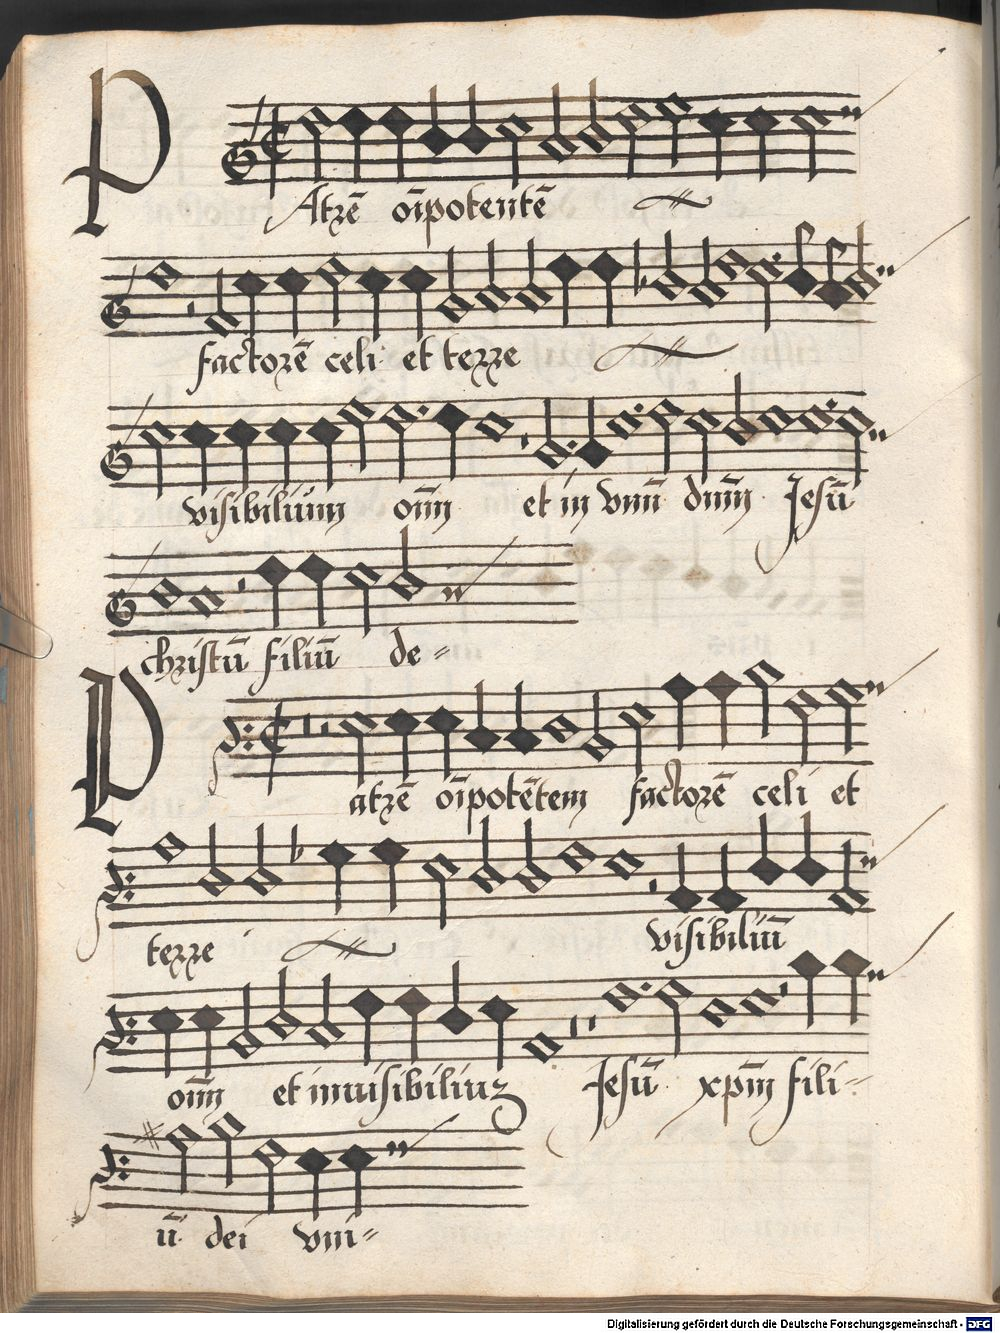 PAtrē oīpotentē
factorē celi et terre
visibilium oīm et in vnū dnm̄ Jesū
christū filiū de-
Patrē oīpotētem factorē celi et
terre visibiliū
oīm et inuisibiliuz Jesū xpm̄ fili-
ū dei vni-
Digitalisierung gefördert durch die Deutsche Forschungsgemeinschaft - DFG